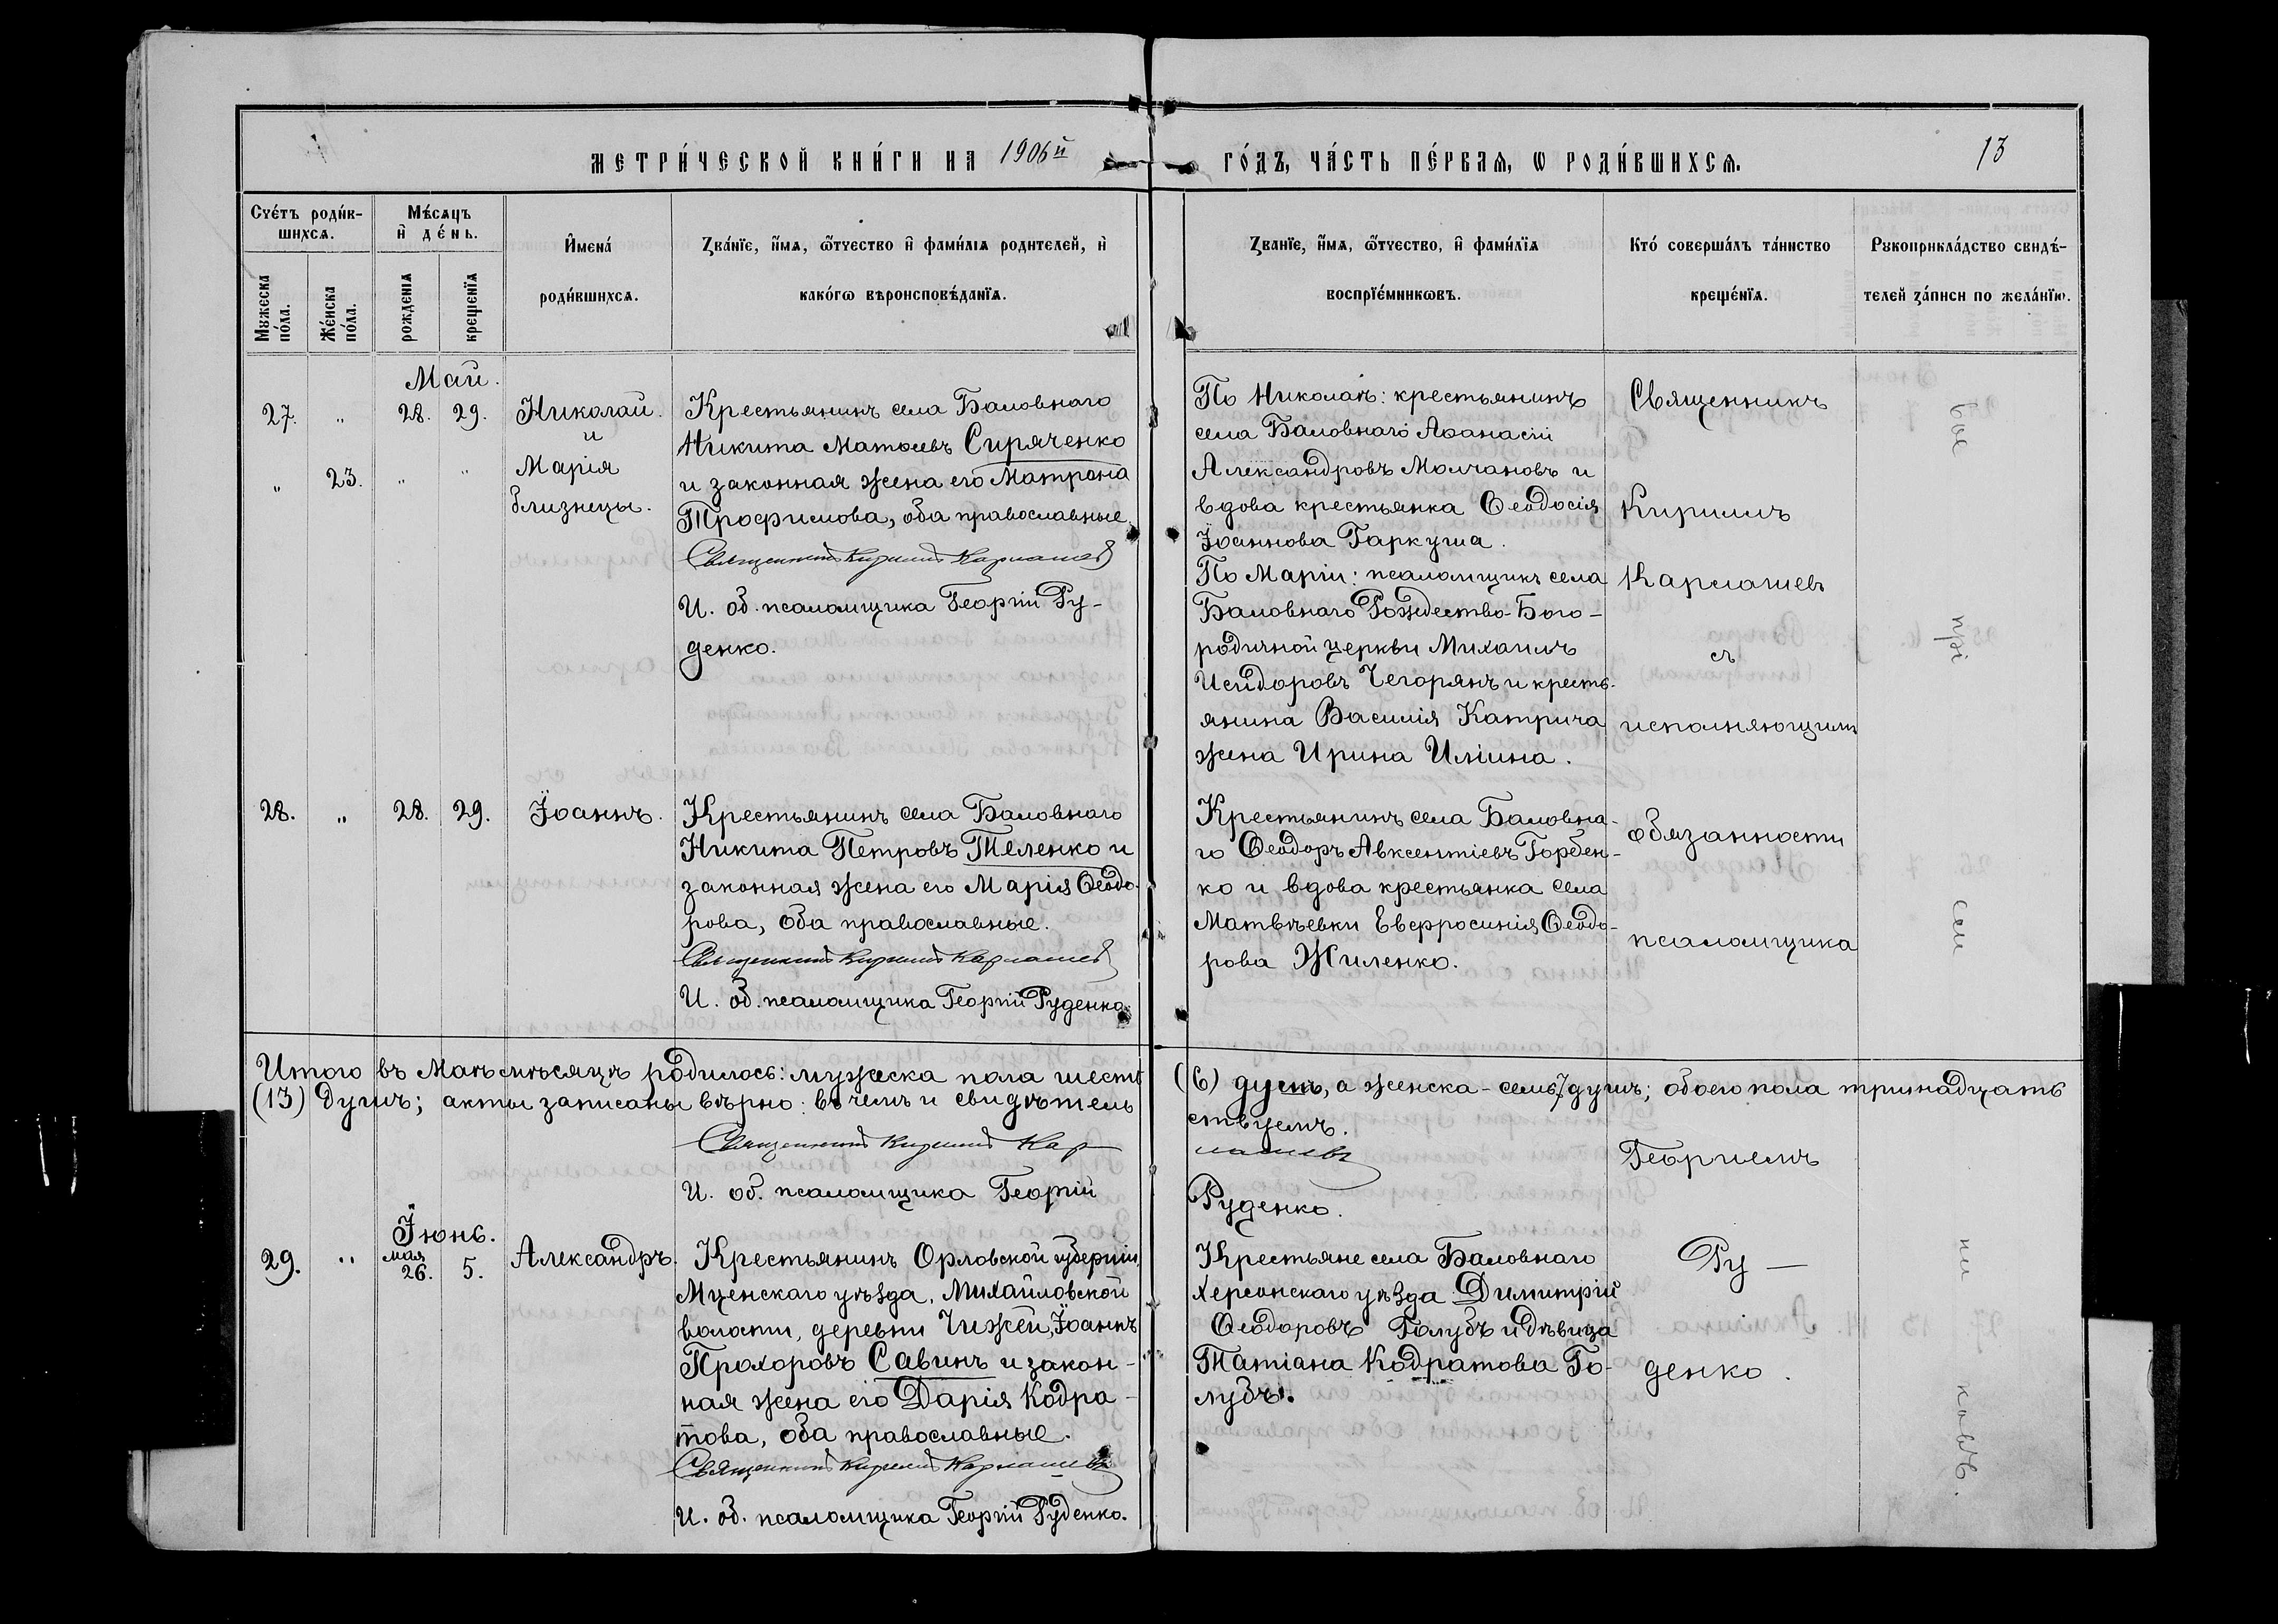 МЕТРИ́ЧЕСКОЙ КНИ́ГИ НА 1906й ГО́ДЪ, ЧА́СТЬ ПЕ́РВАѦ, Ѡ РОДИ́ВШИХСѦ.
13
Сче́тъ роди́вшихсѧ.
Мѣ́сѧцъ и҆ де́нь.
И҆мена́ роди́вшихсѧ.
Зва́нїе, и҆́мѧ, ѻ҆́тчество и҆ фами́лїѧ родителей, и҆ како́гѡ вѣроисповѣ́данїѧ.
Зва́нїе, и҆́мѧ, ѻ҆́тчество, и҆ фами́лїѧ воспрїе́мникѡвъ.
Кто́ соверша́лъ та́инство креще́нїѧ.
Рукоприкла́дство свидѣ́телей за́писи по жела́нїю.
Мужеска по́ла.
Же́нска по́ла.
рожденїѧ
крещенїѧ
Май.
27. „ 28. 29. Николай.
и
„ 23. „ „ Марія
близнецы.
Крестьянинъ села Баловнаго
Никита Матѳіевъ Сиряченко
и законная жена его Матрона
Трофимова, оба православные.
Священникъ Кириллъ Кармашевъ
И. об. псаломщика Георгій Ру-
денко.
По Николаѣ: крестьянинъ
села Баловнаго Аѳанасій
Александровъ Молчановъ и
вдова крестьянка Ѳеодосія
Іоаннова Гаркуша.
По Маріи: псаломщикъ села
Баловнаго Рождество-Бого-
родичной церкви Михаилъ
Исидоровъ Чегорянъ и кресть-
янина Василія Катрича
жена Ирина Иліина.
Священникъ
Кириллъ
Кармашевъ
съ
исполняющимъ
обязанности
псаломщика
Георгіемъ
Ру —
денко.
28. „ 28. 29. Іоаннъ.
Крестьянинъ села Баловнаго
Никита Петровъ Теленко и
законная жена его Марія Ѳеодо-
рова, оба православные.
Священникъ Кириллъ Кармашевъ
И. об. псаломщика Георгій Руденко.
Крестьянинъ села Баловна-
го Ѳеодоръ Авксентіевъ Горбен-
ко и вдова крестьянка села
Матвѣевки Евфросинія Ѳеодо-
рова Жиленко.
Итого въ Маѣ мѣсяцѣ родилось: мужеска пола шесть (6) душъ, а женска - семь 7 душъ; обоего пола тринадцать
(13) душъ; акты записаны вѣрно: въ чемъ и свидѣтель
ствуемъ.
Священникъ Кириллъ Кармашевъ
И. об. псаломщика Георгій Руденко.
Іюнь.
29. „ мая 26. 5. Александръ.
Крестьянинъ Орловской губерніи,
Мценскаго уѣзда, Михайловской
волости, деревни Чижей, Іоаннъ
Прохоровъ Савинъ и закон-
ная жена его Дарія Кодра-
това, оба православные.
Священникъ Кириллъ Кармашевъ
И. об. псаломщика Георгій Руденко.
Крестьяне села Баловнаго
Херсонскаго уѣзда Димитрій
Ѳеодоровъ Голубъ и дѣвица
Татіана Кодратова Го-
лубъ.